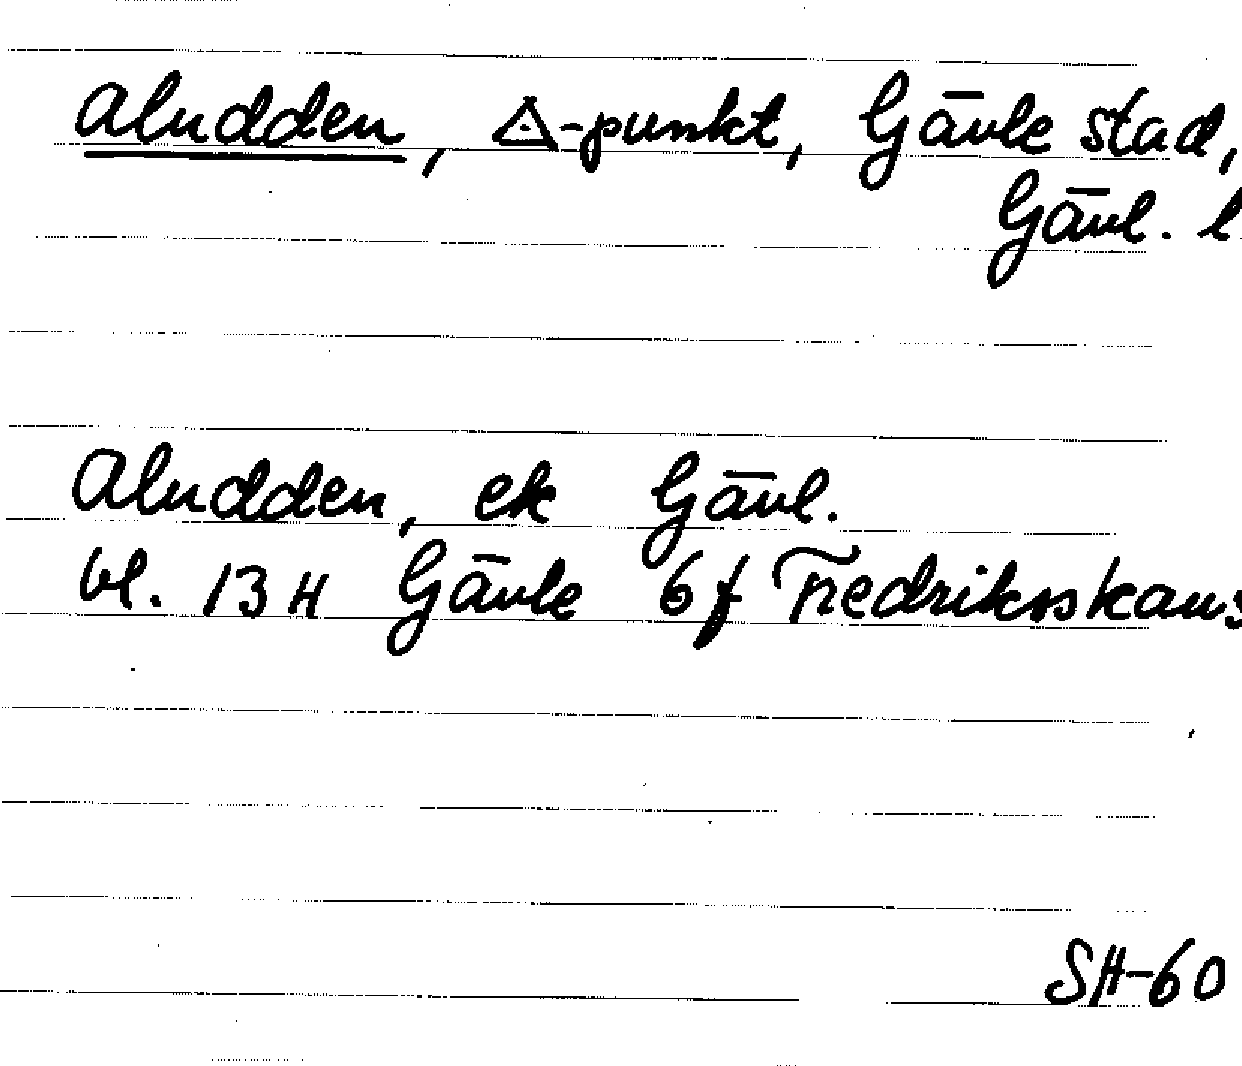 Aludden, △-punkt, Gävle stad,
Gävl. l.
Aludden, ek Gävl.
bl. 13 H Gävle 6f Fredriksskans
SH-60